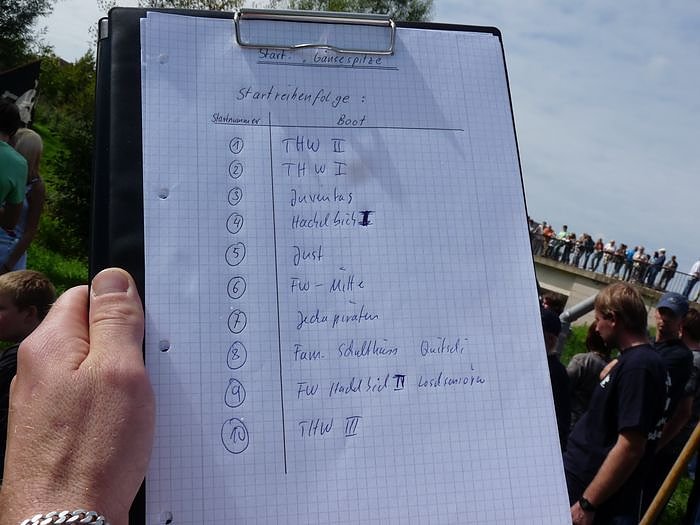 Start. "Gänsespitze
Startreihenfolge :
Startnummer Boot
1 THW II
2 THW I
3 Juventas
4 Hachelbich I
5 Just
6 FW-Mitte
7 Jechapiraten
8 Fam. Schulthüss Quitschi
9 FW Hachelbich II
10 THW III